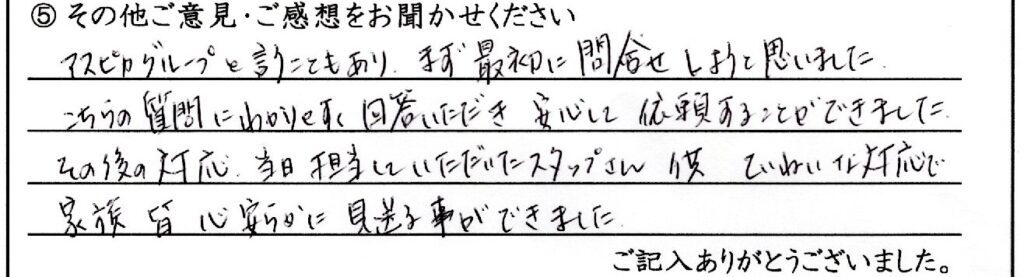 ⑤ その他ご意見・ご感想をお聞かせください
アスピカグループと言うこともあり、まず最初に問合せしようと思いました。
こちらの質問にわかりやすく回答いただき 安心して 依頼することができました。
その後の対応、当日担当していただいたスタッフさん 供 ていねいな対応で
家族 皆 心安らかに 見送る事ができました。
ご記入ありがとうございました。